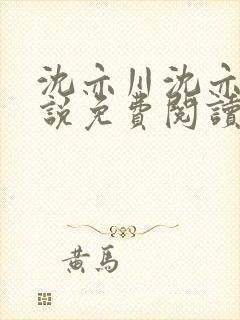 沈亦川沈亦
說免費閱讀
黃馬